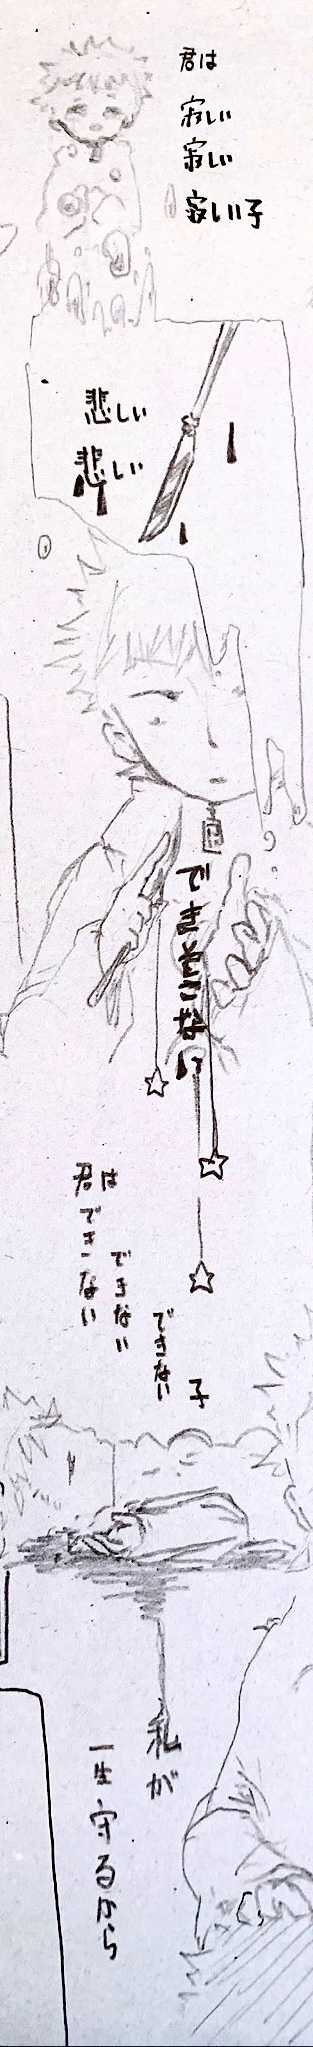 君は
寂しい
寂しい
寂しい子
悲しい
悲しい
できそこない
君は
できない
できない
できない
子
私が
一生守るから